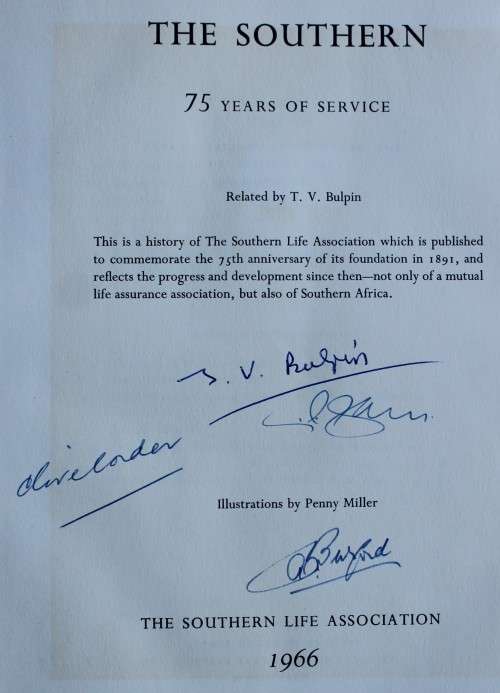 THE SOUTHERN
75 YEARS OF SERVICE
Related by T. V. Bulpin
This is a history of The Southern Life Association which is published
to commemorate the 75th anniversary of its foundation in 1891, and
reflects the progress and development since then—not only of a mutual
life assurance association, but also of Southern Africa.
T. V. Bulpin
Clive Corder
Illustrations by Penny Miller
THE SOUTHERN LIFE ASSOCIATION
1966